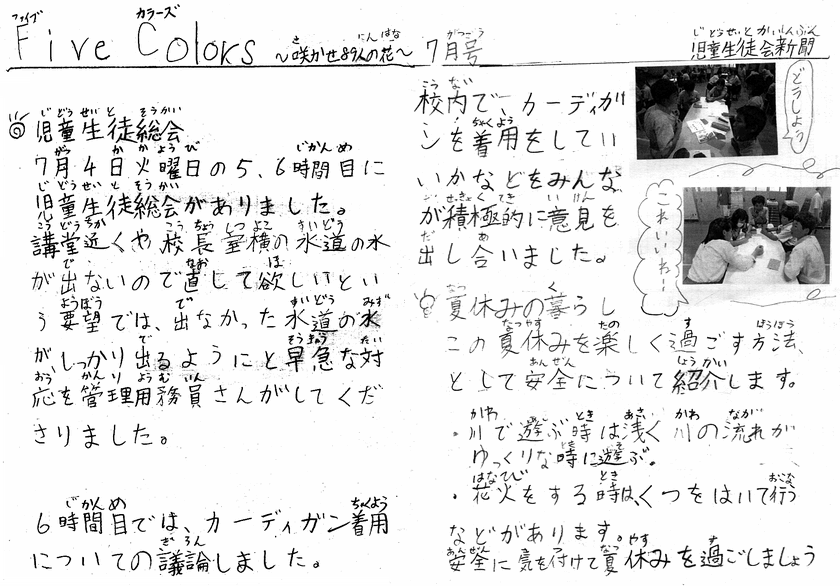 Five Colors ～咲かせ89人の花～ 7月号 児童生徒会新聞
児童生徒総会
7月4日火曜日の5、6時間目に
児童生徒総会がありました。
講堂近くや、校長室横の水道の水
が出ないので直して欲しいとい
う要望では、出なかった水道の水
がしっかり出るようにと早急な対
応を管理用務員さんがしてくだ
さりました。
6時間目では、カーディガン着用
についての議論しました。
校内で、カーディガ
ンを着用をしてい
いかなどをみんな
が積極的に意見を
出し合いました。
どうしよう
これいいねー
夏休みの暮らし
この夏休みを楽しく過ごす方法、
として安全について紹介します。
・川で遊ぶ時は浅く川の流れが
ゆっくりな時に遊ぶ。
・花火をする時は、くつをはいて行う
などがあります。
安全に気を付けて夏休みを過ごしましょう